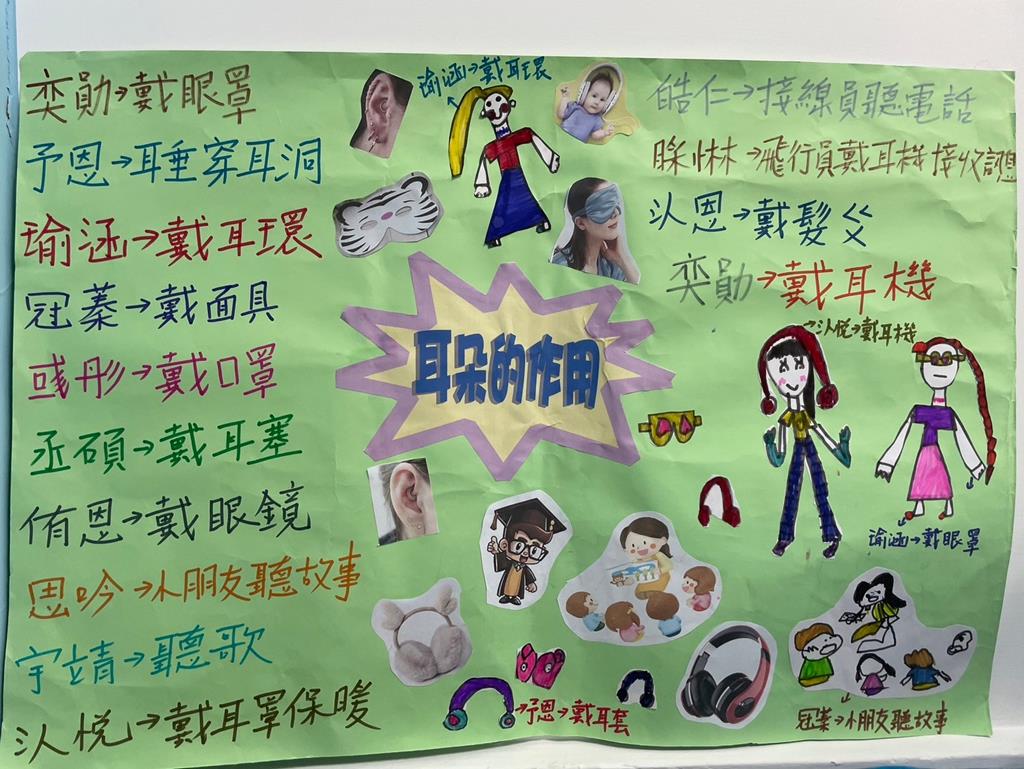 奕勛→戴眼罩
予恩→耳垂穿耳洞
瑜涵→戴耳環
冠蓁→戴面具
彧彤→戴口罩
丞碩→戴耳塞
侑恩→戴眼鏡
恩吟→小朋友聽故事
宇靖→聽歌
沁悦→戴耳罩保暖
瑜涵→戴耳環
耳朵的作用
皓仁→接線員聽電話
睬惏→飛行員戴耳機接收訊息
沁恩→戴髮ㄆ
奕勛→戴耳機
→沁悦→戴耳機
瑜涵→戴眼罩
→予恩→戴耳套
冠蓁→小朋友聽故事